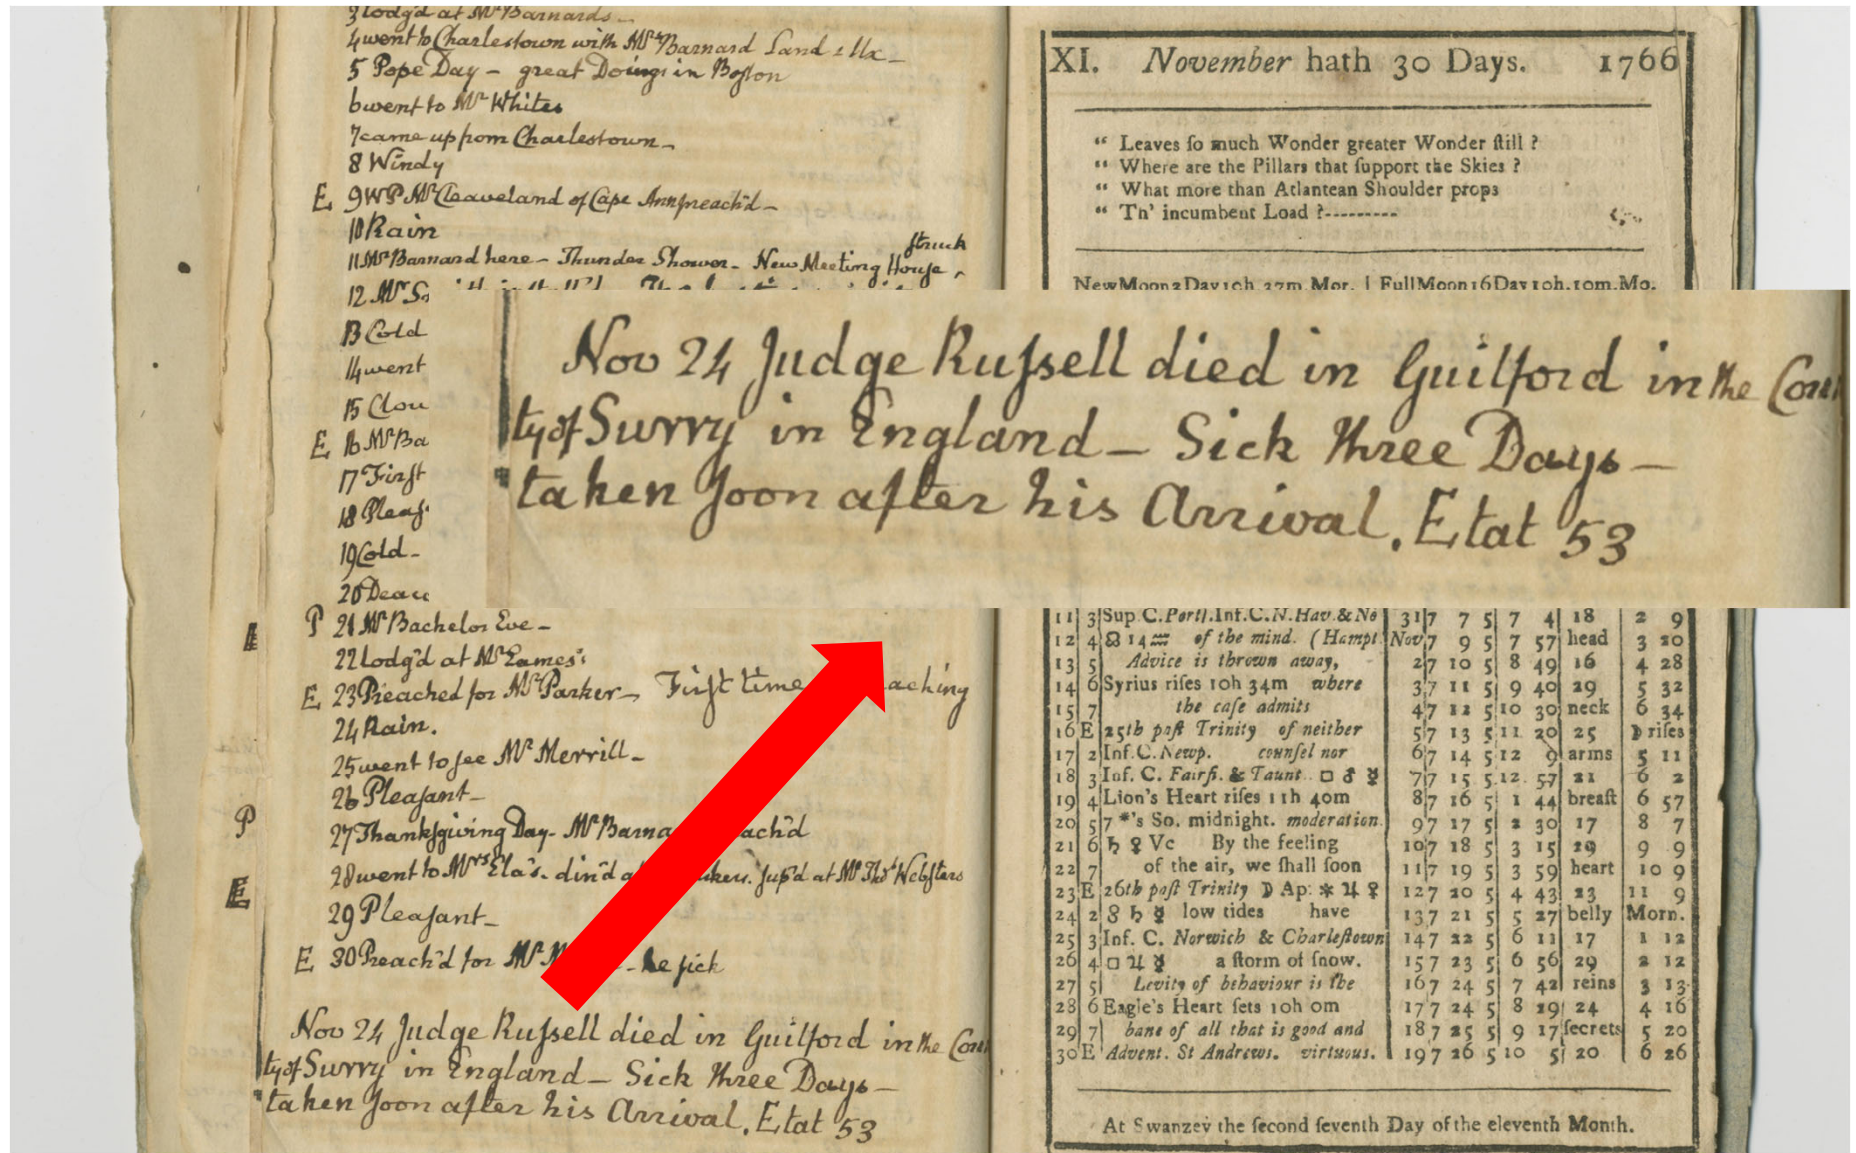 3 lodg'd at Mr Barnards -
4 went to Charlestown with Mr Barnard Land &
5 Pope Day - great Doings in Boston
6 went to Mr Whites
7 came up from Charlestown -
8 Windy
E 9 WP Mr Cleaveland of Cape Ann preach'd -
10 Rain
struck
11 Mr Barnard here - Thunder Shower - New Meeting House ^
12 Mr
13 Cold
14 went
15
E 16 Mr Ba
17 First
18
19 Cold -
20
P 21 Mr Bachelor Eve -
22 Lodg'd at Mr Eames's
E 23 Preached for Mr Parker - First time aching
24 Rain.
25 went to see Mr Merrill -
26 Pleasant -
P 27 Thanksgiving Day - Mr Barna ach'd
28 went to Mrs Ela's. din'd a sup'd at Mr Thos Websters
E
29 Pleasant -
E 30 Preach'd for Mr - he sick
Nov 24 Judge Russell died in Guilford in the Coun
ty of Surry in England - Sick three Days -
taken soon after his Arrival. Etat 53
Nov 24 Judge Russell died in Guilford in the Coun
ty of Surry in England - Sick three Days -
taken soon after his Arrival. Etat 53
XI. November hath 30 Days. 1766
“ Leaves ſo much Wonder greater Wonder ſtill ?
“ Where are the Pillars that ſupport the Skies ?
“ What more than Atlantean Shoulder props
“ Th' incumbent Load ?---------
New Moon 2 Day 10h. 37m. Mor. | Full Moon 16 Day 10h. 10m. Mo.
11 3 Sup. C. Portſ. Inf. C. N. Hav. & Ne 31 7 7 5 7 4 18 2 9
12 4 ☊ 14 ♒ of the mind. (Hampt. Nov 7 9 5 7 57 head 3 20
13 5 Advice is thrown away, 2 7 10 5 8 49 16 4 28
14 6 Syrius riſes 10h 34m where 3 7 11 5 9 40 29 5 32
15 7 the caſe admits 4 7 12 5 10 30 neck 6 34
16 E 25th paſt Trinity of neither 5 7 13 5 11 20 25 ☽ riſes
17 2 Inf. C. Newp. counſel nor 6 7 14 5 12 9 arms 5 11
18 3 Inf. C. Fairf. & Taunt. □ ♂ ☿ 7 7 15 5 12 57 21 6 2
19 4 Lion's Heart riſes 11h 40m 8 7 16 5 1 44 breaſt 6 57
20 5 7 *'s So. midnight. moderation. 9 7 17 5 2 30 17 8 7
21 6 ♄ ♀ Vc By the feeling 10 7 18 5 3 15 29 9 9
22 7 of the air, we ſhall ſoon 11 7 19 5 3 59 heart 10 9
23 E 26th paſt Trinity ☽ Ap: ⚹ ♃ ♀ 12 7 20 5 4 43 23 11 9
24 2 ☍ ♄ ☿ low tides have 13 7 21 5 5 27 belly Morn.
25 3 Inf. C. Norwich & Charleſtown 14 7 22 5 6 11 17 1 12
26 4 □ ♃ ☿ a ſtorm of ſnow. 15 7 23 5 6 56 29 2 12
27 5 Levity of behaviour is the 16 7 24 5 7 42 reins 3 13
28 6 Eagle's Heart ſets 10h 0m 17 7 24 5 8 29 24 4 16
29 7 bane of all that is good and 18 7 25 5 9 17 ſecrets 5 20
30 E Advent. St Andrews. virtuous. 19 7 26 5 10 5 20 6 26
At Swanzey the ſecond ſeventh Day of the eleventh Month.